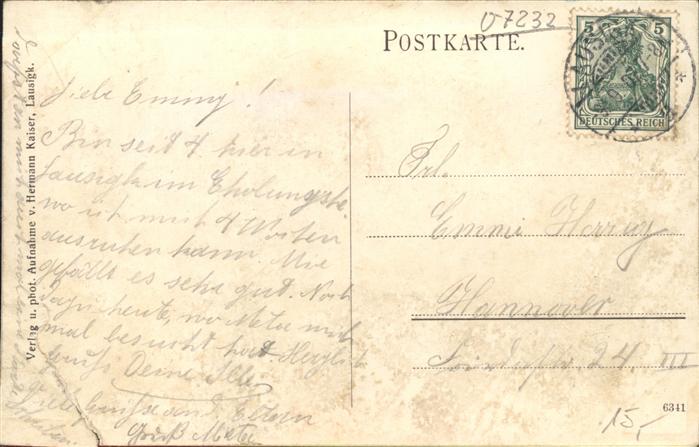 07232
POSTKARTE.
5 5
DEUTSCHES REICH
LAUSIGK
Verlag u. phot. Aufnahme v. Hermann Kaiser, Lausigk.
Liebe Emmy!
Bin seit 4. hier in
Lausigk im Erholungshe.
wo ich mich 4 Wochen
ausruhen kann. Mir
gefällt es sehr gut. Noch
dazu heute, wo Mete mich
mal besucht hat. Herzlich
Gruß Deine
Viele Grüsse an d. Eltern
Gruß Mete
Frl.
Emmie Herzog
Hannover
24 III
6341
15,-